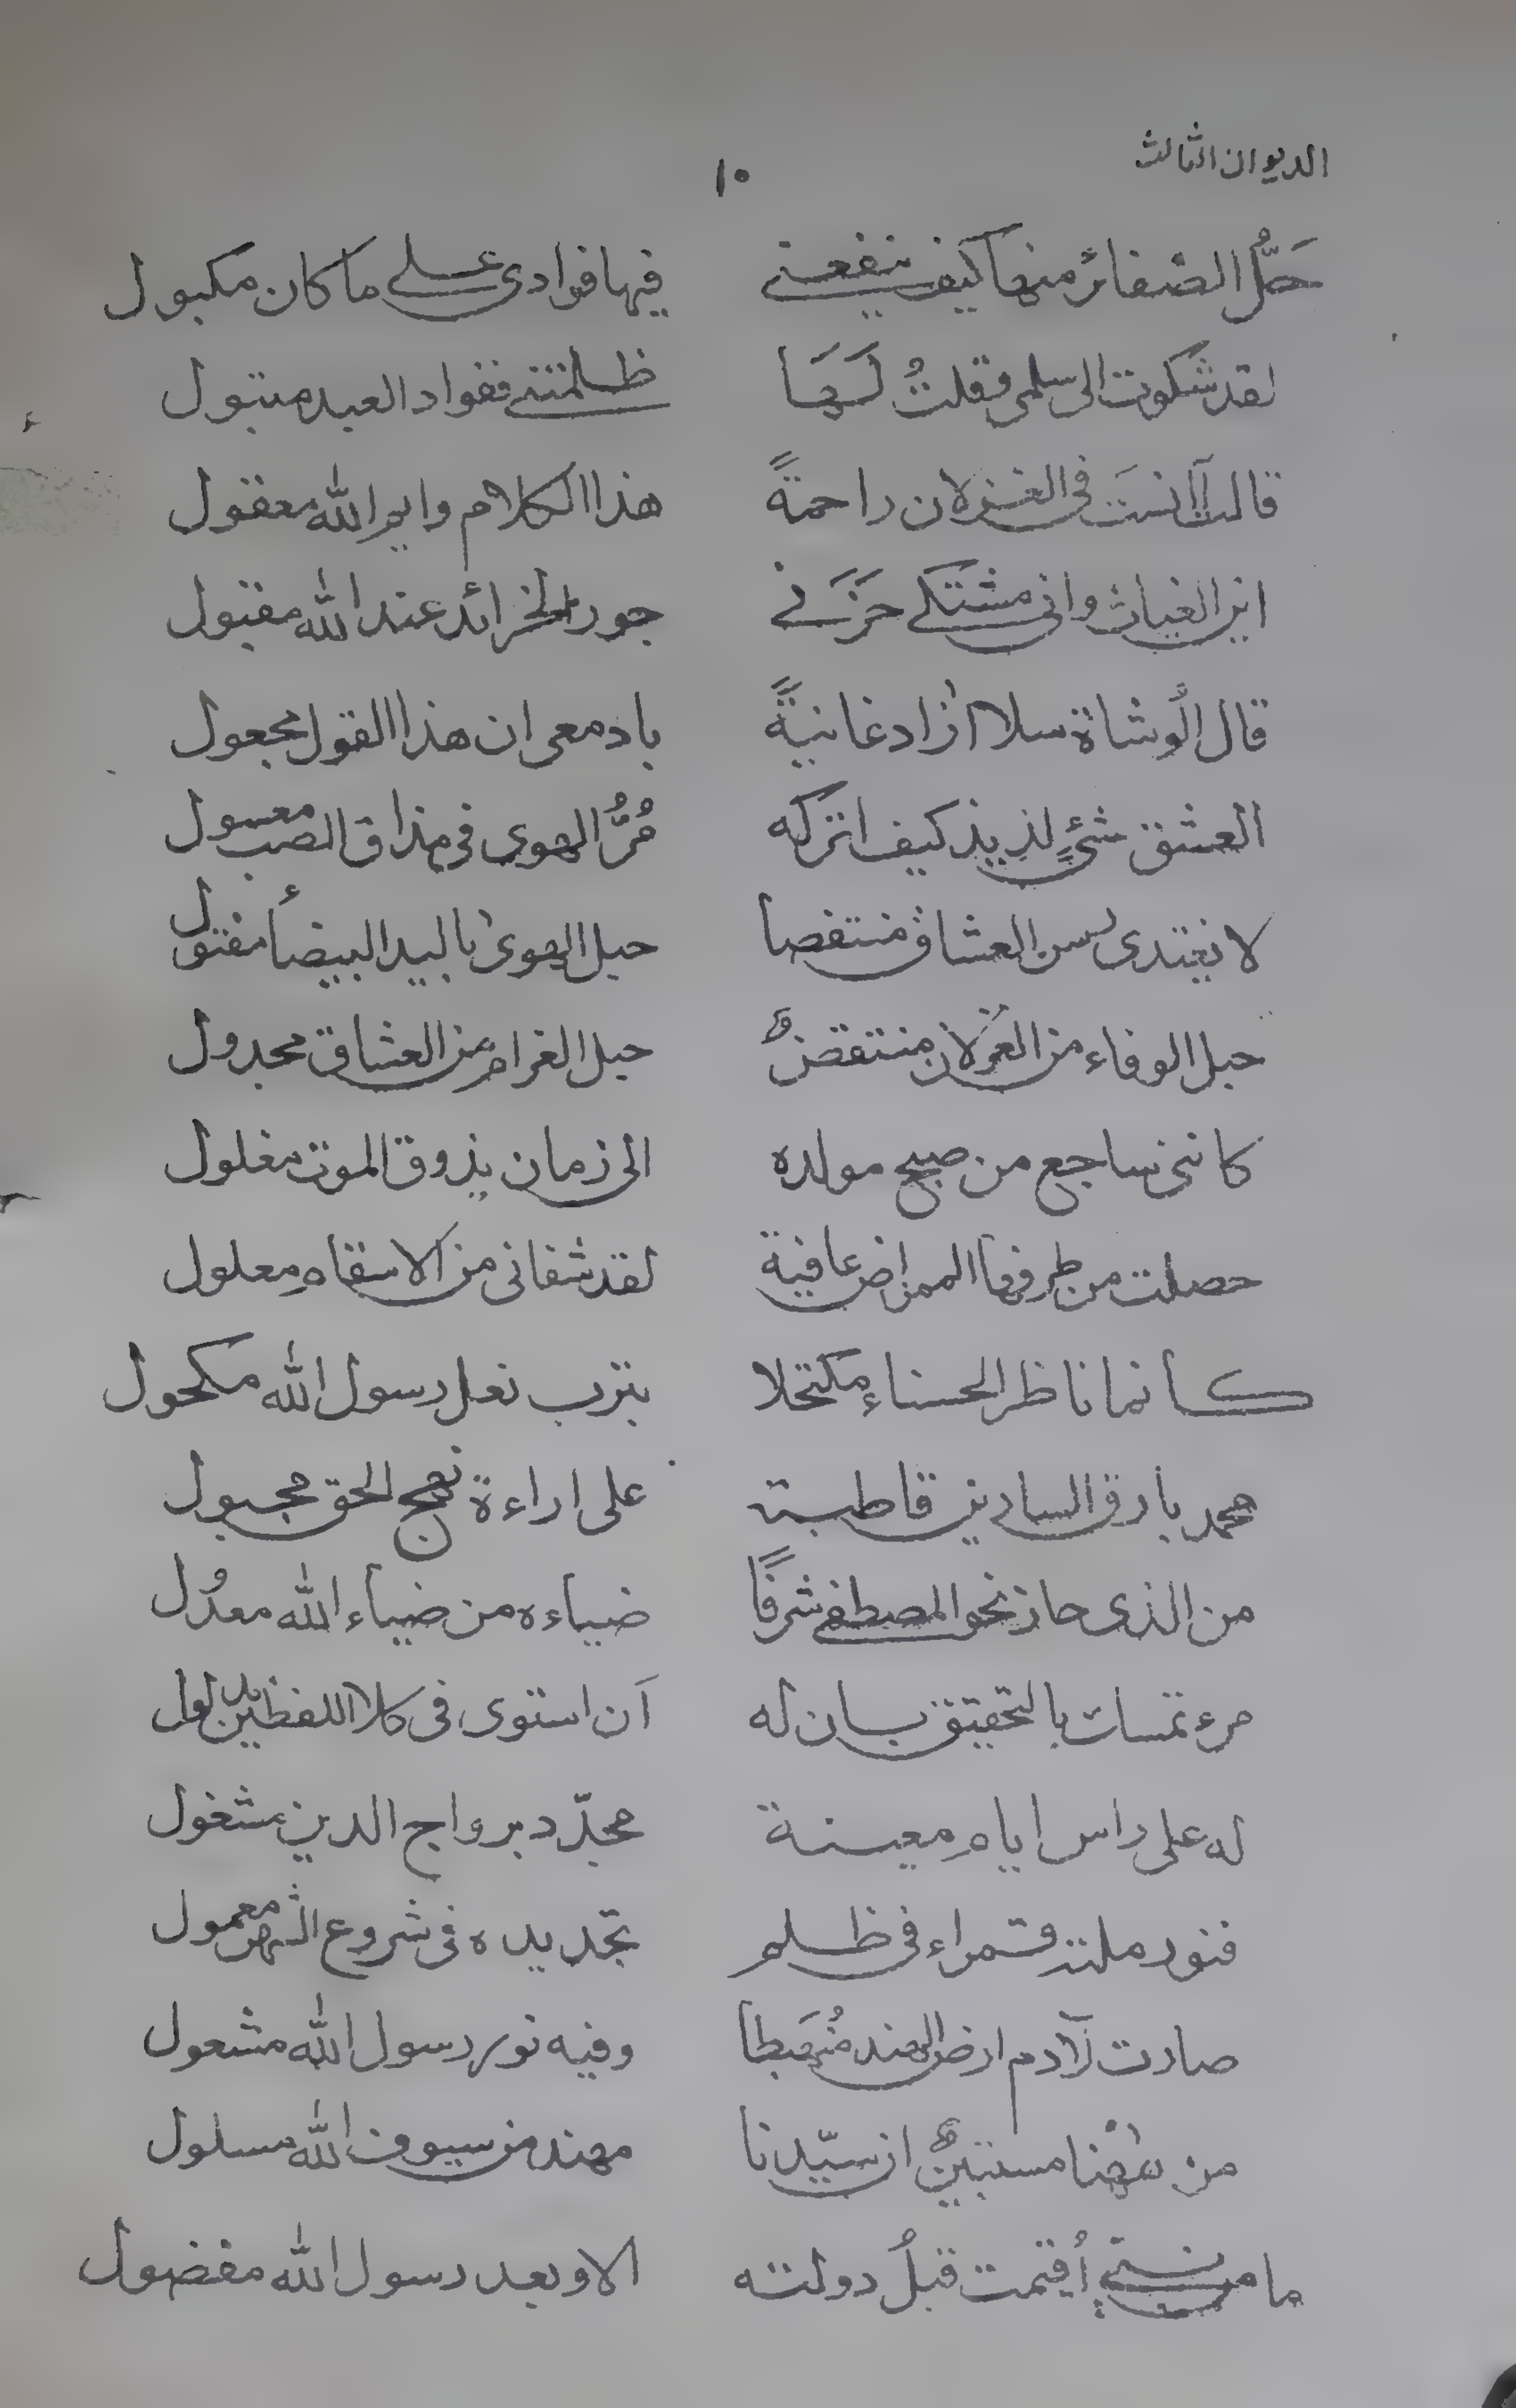 الديوان الثالث
١٠
حَلُّ الضفائر منها كيف ينفعنى فيها فوادى على ما كان مكبول
لقد شكوت الى سلمى فقلتُ لَهَا ظلمتنى ففواد العبد متبول
قالت آانستَ فى الغزلان راحمةً هذا الكلام وايم الله معقول
اين الغياث وانى مشتكى حَزَنى جور الخرائد عند الله مقبول
قال الوشاة سلا ازاد غانيةً يا دمعى ان هذا القول مجعول
العشق شئٍ لذيذ كيف اتركه مُرُّ الهوى فى مذاق الصب معسول
لا يغتدى لسن العشاق منتقصا حبل الهوى باليد البيضأ مفتول
حبل الوفاء من الغزلان منتقض حبل الغرام من العشاق مجدول
كاننى ساجع من صبح مولده الى زمان يذوق الموت مغلول
حصلت من طرفها الممراض عافية لقد شفانى من الاسقام معلول
كأنما ناظر الحسناء مكتحلا بترب نعل رسول الله مكحول
محمد بارق السارين قاطبة على اراءة نهج الحق مجبول
من الذى حاز نحو المصطفى شرفًا ضياءه من ضياء الله معدُل
مرء تمسك بالتحقيق بان له اَن استوى فى كلا اللفظين
له على راس ايام معينة مجدّد برواج الدين مشغول
فنور ملته قمراء فى ظلم تجديده فى شروع الشهر معمول
صارت لآدم ارض الهند مُهبَطا وفيه نور رسول الله مشعول
من ههنا مستبينٌ ان سيّدنا مهند من سيوف الله مسلول
ما من أقيمت قبلُ دولته الا وبعد رسول الله مفضول